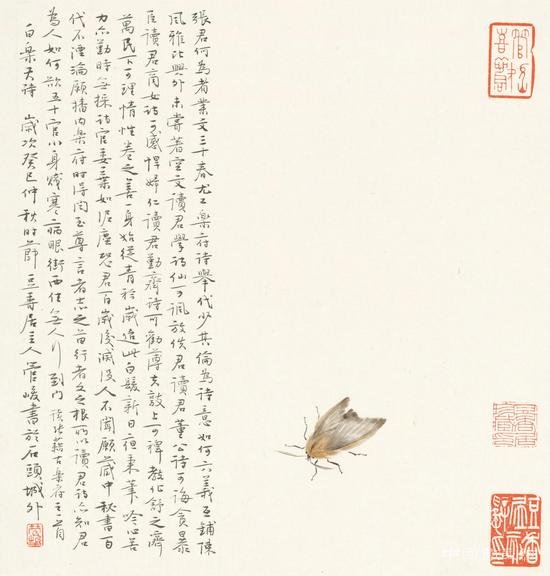 張君何為者業文三十春尤工樂府詩舉代少其倫為詩意如何六義互鋪陳
風雅比興外未嘗著空文讀君學詩仙可諷放佚君讀君董公詩可誨貪暴
臣讀君商女詩可感悍婦仁讀君勤齊詩可勸薄夫敦上可裨教化舒之濟
萬民下可理情性卷之善一身始從青衿歲迨此白髮新日秉筆吟心苦
力亦勤時無採詩官委棄如泥塵恐君百歲後滅沒人不聞願藏中秘書百
代不湮淪願播內樂府時得聞至尊言者志之苗行者文之根所以讀君詩亦知君
為人如何欲五十官小身賤寒病眼街西住無人行到門 讀張籍古樂府
白樂天詩 歲次癸巳仲秋時節 主人管峻書於石頭城外